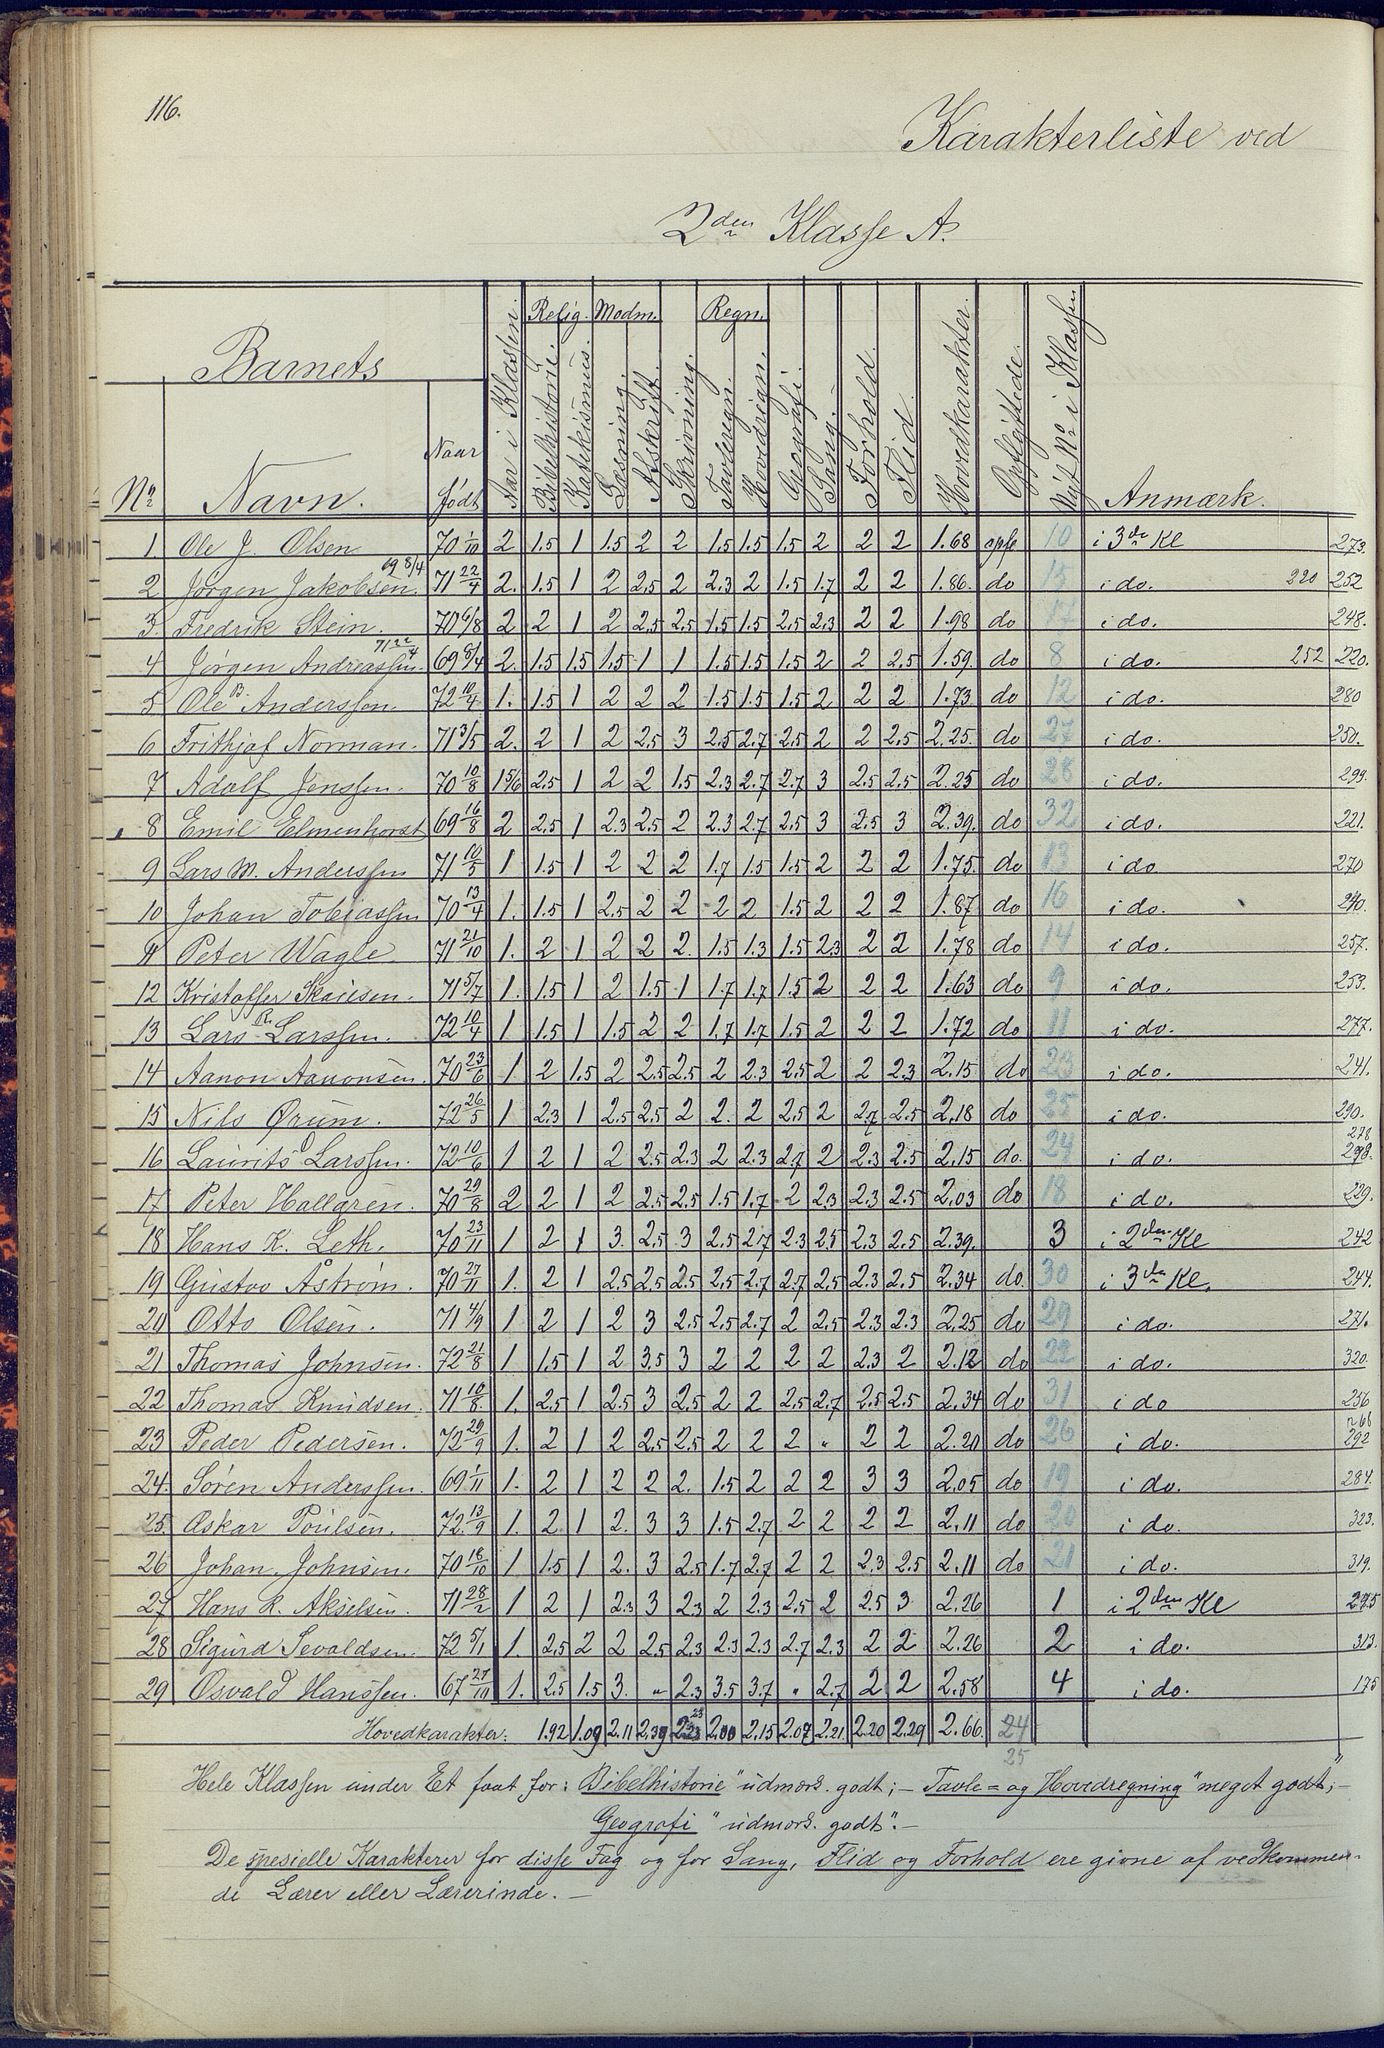 116.
Karakterliste ved
2den Klasse A.
Barnets
Relig. Modm. Regn.
No Navn. Naar født Aar i Klassen. Bibelhistorie. Katekismus. Læsning. Afskrift. Skrivning. Tavleregn. Hovedregn. Geografi. Sang. Forhold. Flid. Hovedkarakter. Opflyttede. Nyt No i Klassen Anmærk.
1. Ole J. Olsen 70 1/10 2 1.5 1 1.5 2 2 1.5 1.5 1.5 2 2 2 1.68 opfl 10 i 3die Kl 273.
69 8/4
2 Jørgen Jakobsen. 71 22/4 2. 1.5 1 2 2.5 2 2.3 2 1.5 1.7 2 2 1.86. do 15 i do. 220 252
3. Fredrik Stein. 70 6/8 2 2 1 2 2.5 2.5 1.5 1.5 2.5 2.3 2 2 1.98 do 17 i do. 248.
71 22/4
4 Jørgen Andreassen. 69 8/4 2. 1.5 1.5 1.5 1 1 1.5 1.5 1.5 2 2 2.5 1.59. do 8 i do. 252 220.
5 Ole B. Anderssen. 72 10/4 1. 1.5 1 2 2 2 1.5 1.5 1.5 2 2 2 1.73 do 12 i do. 280
6 Frithjof Norman. 71 3/5 2. 2 1 2 2.5 3 2.5 2.7 2.5 2 2 2.5 2.25. do 27 i do. 250.
7 Adolf Jenssen. 70 10/8 1 5/6 2.5 1 2 2 1.5 2.3 2.7 2.7 3 2.5 2.5 2.25 do 28 i do. 299.
8 Emil Elmenhorst 69 16/8 2 2.5 1 2.3 2.5 2 2.3 2.7 2.5 3 2.5 3 2.39. do 32 i do. 221.
9 Lars M. Anderssen 71 10/5 1 1.5 1 2 2 2 1.7 1.5 1.5 2 2 2 1.75. do 13 i do 270
10 Johan Tobiassen 70 13/4 1. 1.5 1 2.5 2 2 2 2 1.5 2 2 2 1.87 do 16 i do. 240.
11 Peter Wagle 71 21/10 1. 2 1 2 2 2. 1.5 1.3 1.5 2.3 2 2 1.78 do 14 i do. 257.
12 Kristoffer Skaiesen. 71 5/7 1. 1.5 1 2 1.5 1 1.7 1.7 1.5 2 2 2 1.63 do 9 i do. 253.
13 Lars R. Larssen. 72 10/4 1 1.5 1 1.5 2 2 1.7 1.7 1.5 2 2 2 1.72 do 11 i do. 277.
14 Aanon Aanonsen. 70 23/6 1 2 1.5 2 2.5 2.5 2 2.3 2.5 2 2 2.3 2.15 do 23 i do. 241.
15 Nils Ørum. 72 26/5 1 2.3 1 2.5 2.5 2 2. 2 2.5 2 2.7 2.5 2.18 do 25 i do. 290.
278
16 Laurits Larssen. 72 10/6 1 2 1 2 2.5 2.3 2 2.3 2.7 2 2.3 2.5 2.15 do. 24 i do. 298.
17 Peter Hallgren. 70 29/8 2 2 1 2 2.5 2.5 1.5 1.7 2 2.3 2.3 2.5 2.03 do 18 i do. 229.
18 Hans K. Leth. 70 23/11 1 2 1 3. 2.5 3 2.5 2.7 2.3 2.5 2.3 2.5 2.39. 3 i 2den Kl 242
19 Gustav Åstrøm. 70 27/11 1. 2 1 2.5 2.5 2.5 2.5 2.7 2.7 2.5 2.3 2.5 2.34 do. 30 i 3die Kl. 244.
20 Otto Olsen. 71 4/9 1 2 1 2 3 2.5 2.5 2.7 2 2.5 2.3 2.3 2.25 do 29 i do. 271.
21 Thomas Johnsen. 72 21/8 1 1.5 1 2 3.5 3 2 2 2 2 2.3 2 2.12 do 22 i do. 320.
22 Thomas Knudsen. 71 10/8. 1. 2.5 1 2.5 3 2.5 2 2 2.5 2.7 2.5 2.5 2.34 do 31 i do 256
266
23 Peder Pedersen. 72 29/9 1. 2 1 2 2.5 2.5 2 2 2 " 2 2 2.20 do 26 i do. 292
24. Søren Anderssen. 69 1/11 1. 2 1 2 2 2. 1.5 2 2 2 3 3 2.05 do 19 i do. 284.
25. Oskar Poulsen. 72 13/9 1. 2 1 2. 3 3 1.5 2.7 2 2 2 2 2.11 do 20 i do. 323.
26 Johan Johnsen. 70 18/10 1 1.5 1 2. 3 2.5 1.7 2.7 2 2 2.3 2.5 2.11 do 21 i do. 319.
27 Hans R. Akselsen. 71 28/2 1 2 1 2.3 3 2.3 2 2.3 2.5 2 2.5 3 2.26 1 i 2den Kl 275
28 Sigurd Sevaldsen. 72 5/1 1. 2.5 2 2 2.5 2.3 2.3 2.3 2.7 2.3 2 2 2.26 2 i do. 313.
29 Osvald Hanssen. 67 27/10 1. 2.5 1.5 3. " 2.3 3.5 3.7 " 2.7 2 2 2.58 4 i do. 175
Hovedkarakter: 1.92 1.09 2.11 2.39 2.23 2.00 2.15 2.07 2.21. 2.20 2.29 2.66. 24
25
Hele Klassen under Et faat for: Bibelhistorie "udmærk. godt; – Tavle= og Hovedregning "meget godt"; –
Geografi "udmærk. godt". –
De spesielle Karakterer for disse Fag og for Sang, Flid og Forhold ere givne af vedkommen-
de Lærer eller Lærerinde. –